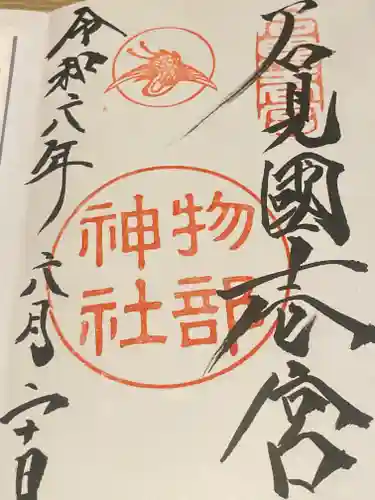 石見國一宮
物部
神社
令和六年六月二十日